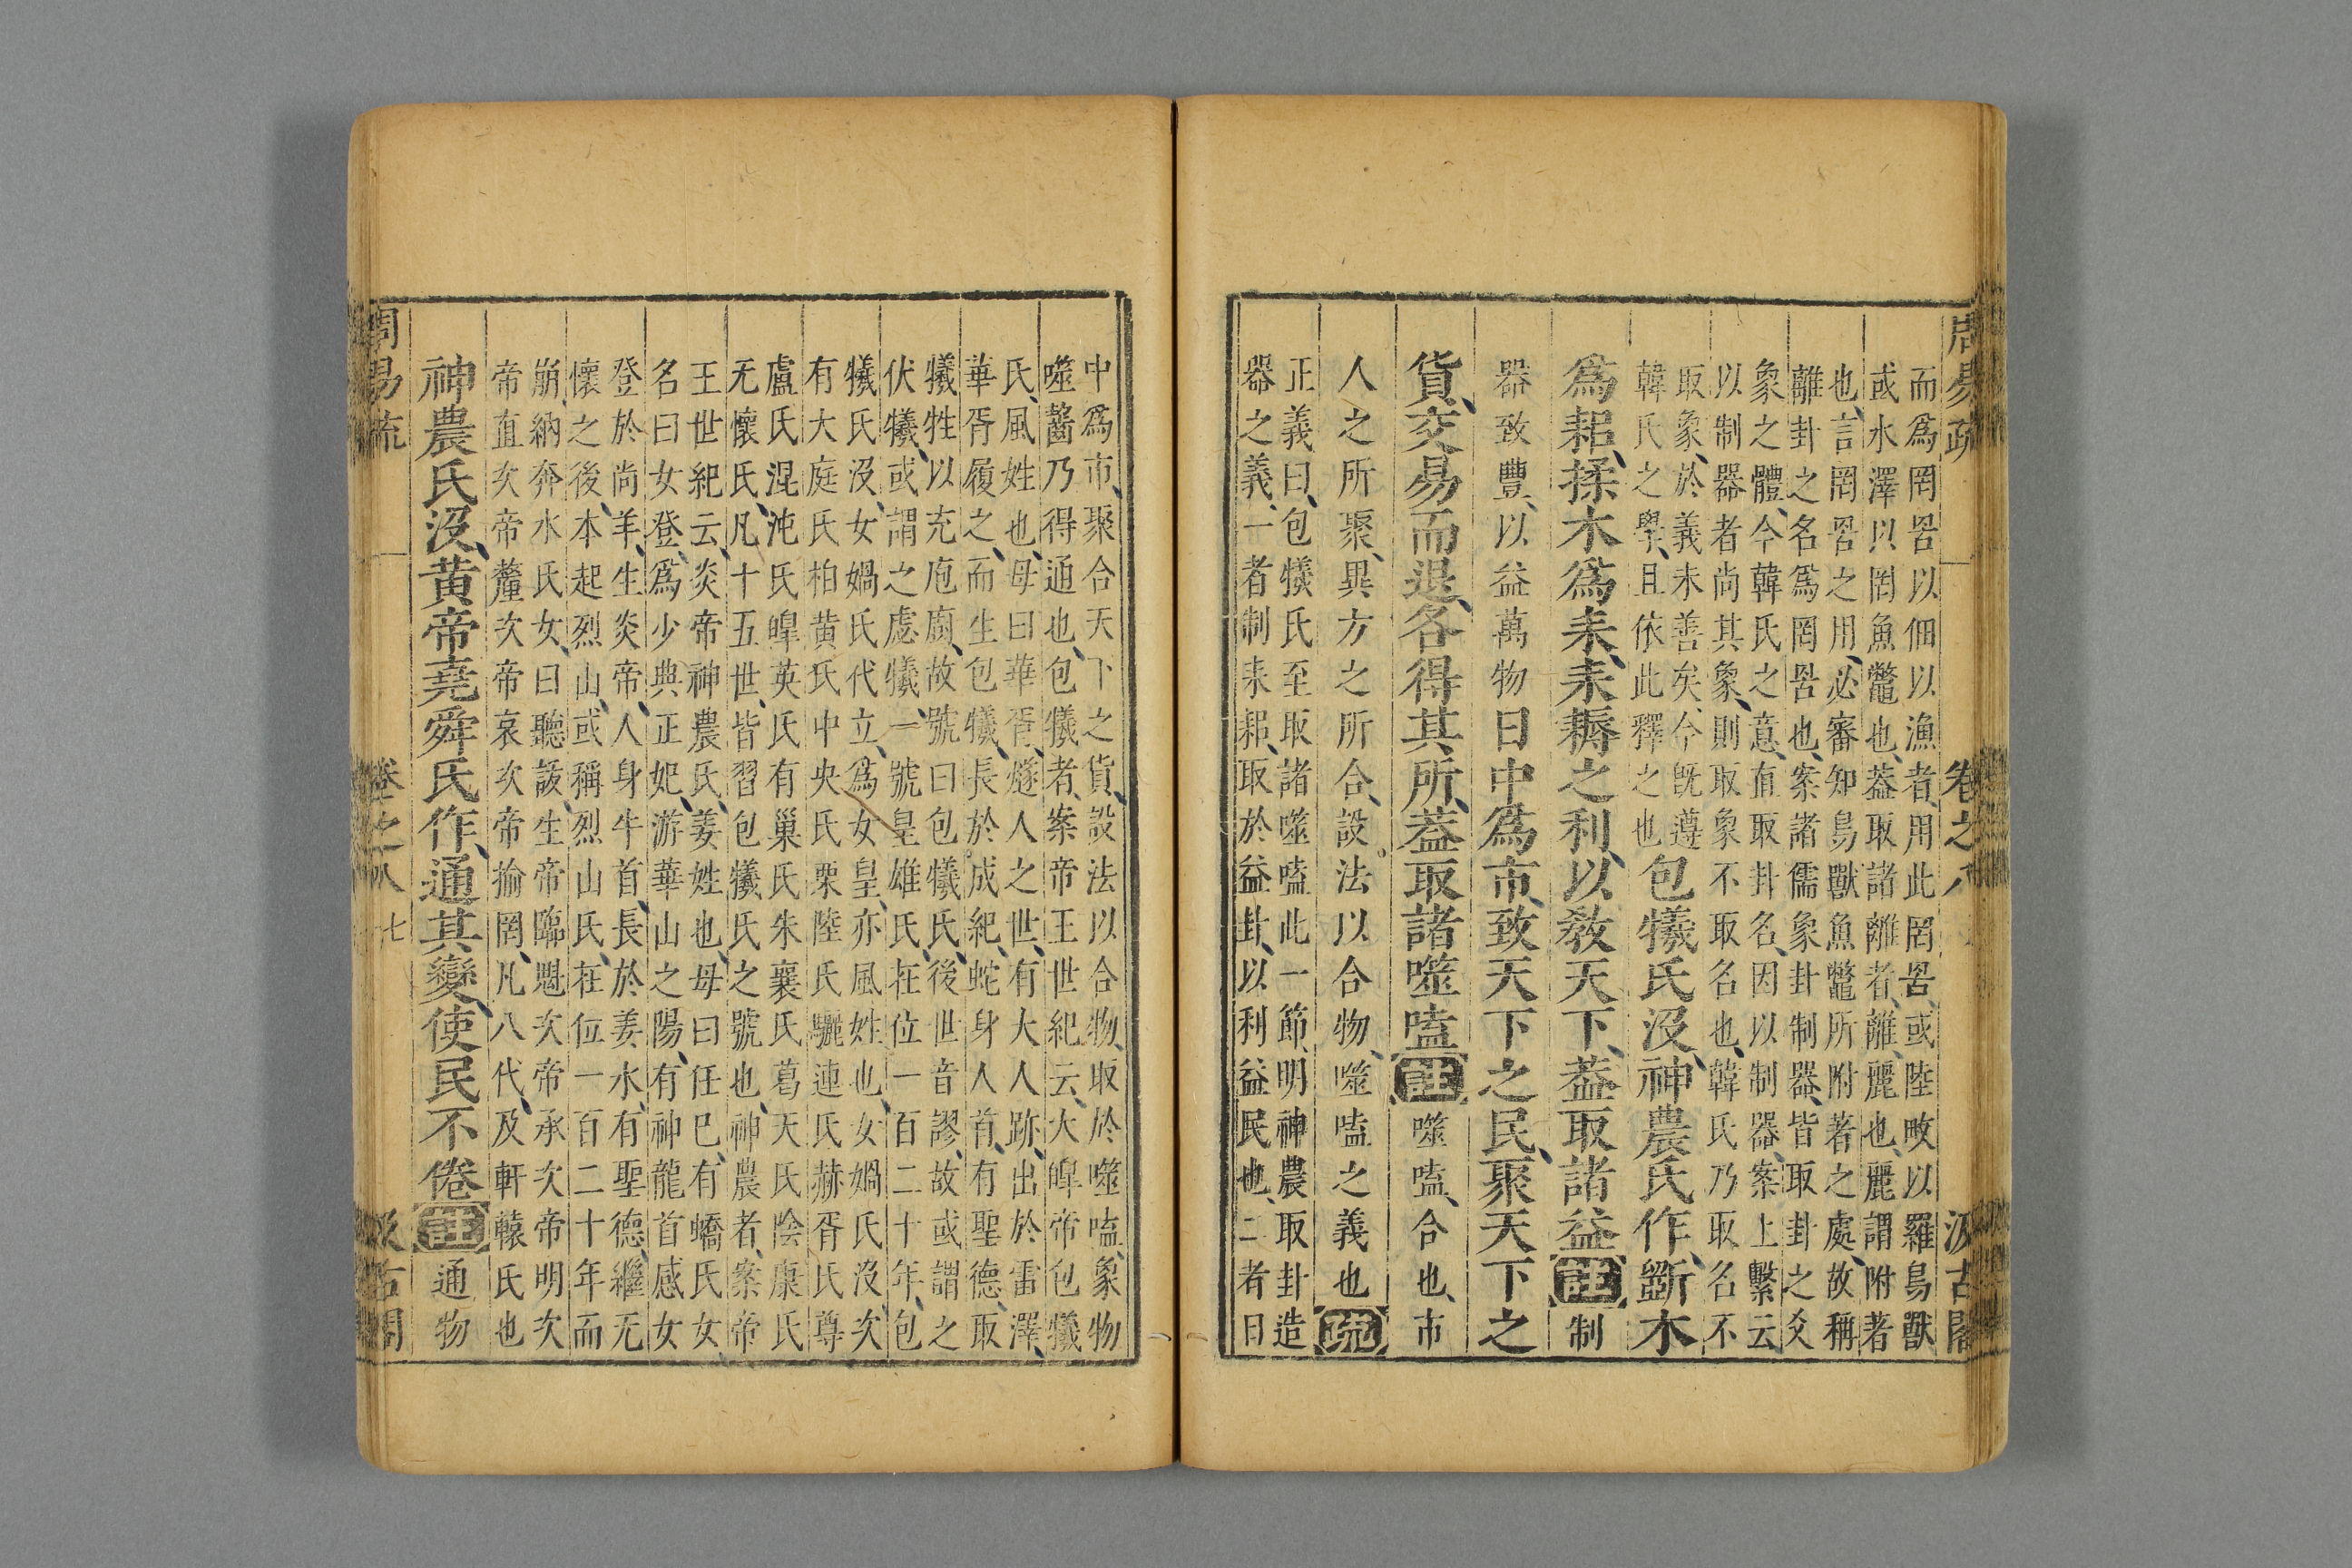 周易疏 卷之八 汲古閣
而爲罔罟以佃以漁者用此罔罟或陸畋以羅鳥獸
或水澤以罔魚鼈也葢取諸離者離麗也麗謂附著
也言罔罟之用必審知鳥獸魚鼈所附著之處故稱
離卦之名爲罔罟也案諸儒象卦制器皆取卦之爻
象之體今韓氏之意直取卦名因以制器案上繫云
以制器者尚其象則取象不取名也韓氏乃取名不
取象於義未善矣今既遵
韓氏之學且依此釋之也
包犧氏沒神農氏作斵木
爲耜揉木爲耒耒耨之利以敎天下葢取諸益註制
器致豐以益萬物日中爲市致天下之民聚天下之
貨交易而退各得其所葢取諸噬嗑註噬嗑合也市
人之所聚異方之所合設法以合物噬嗑之義也疏
正義曰包犧氏至取諸噬嗑此一節明神農取卦造
器之義一者制耒耜取於益卦以利益民也二者日
中爲市聚合天下之貨設法以合物取於噬嗑象物
噬齧乃得通也包犧者案帝王世紀云大皥帝包犧
氏風姓也母曰華胥燧人之世有大人跡出於雷澤
華胥履之而生包犧長於成紀蛇身人首有聖德取
犧牲以充庖廚故號曰包犧氏後世音謬故或謂之
伏犧或謂之虙犧一號皇雄氏在位一百一十年包
犧氏沒女媧氏代立爲女皇亦風姓也女媧氏沒次
有大庭氏柏黄氏中央氏栗陸氏驪連氏赫胥氏尊
盧氏混沌氏皥英氏有巢氏朱襄氏葛天氏陰康氏
无懷氏凡十五世皆習包犧氏之號也神農者案帝
王世紀云炎帝神農氏姜姓也母曰任巳有蟜氏女
名曰女登爲少典正妃游華山之陽有神龍首感女
登於尚羊生炎帝人身牛首長於姜水有聖德繼无
懷之後本起烈山或稱烈山氏在位一百二十年而
崩納奔水氏女曰聽詙生帝臨魁次帝承次帝明次
帝直次帝釐次帝哀次帝揄罔凡八代及軒轅氏也
神農氏沒黄帝堯舜氏作通其變使民不倦註通物
周易疏 卷之八 七 汲古閣